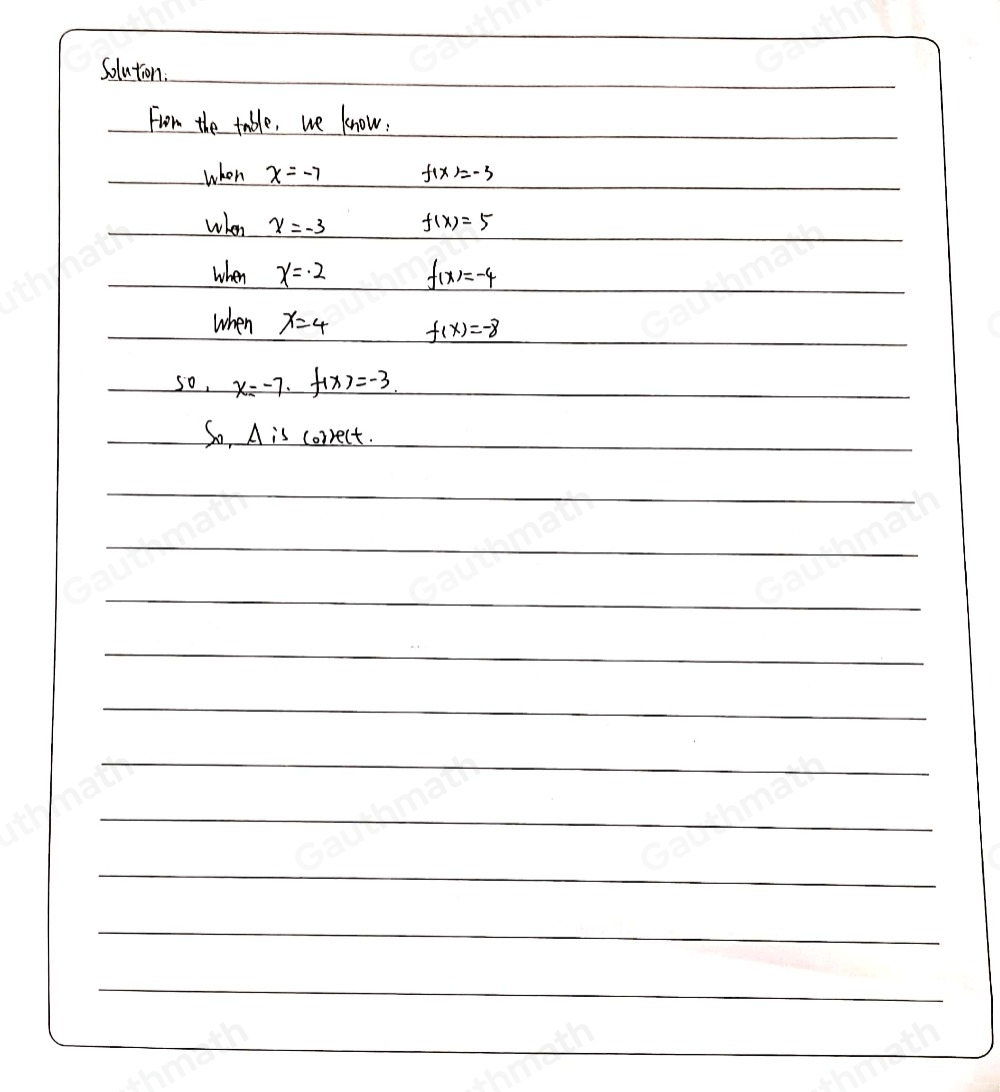 Solution:
From the table, we know:
when x=-7 f(x)=-3
when x=-3 f(x)=5
when x=-2 f(x)=-4
when x=4 f(x)=-8
so, x=-7. f(x)=-3.
So, A is correct.